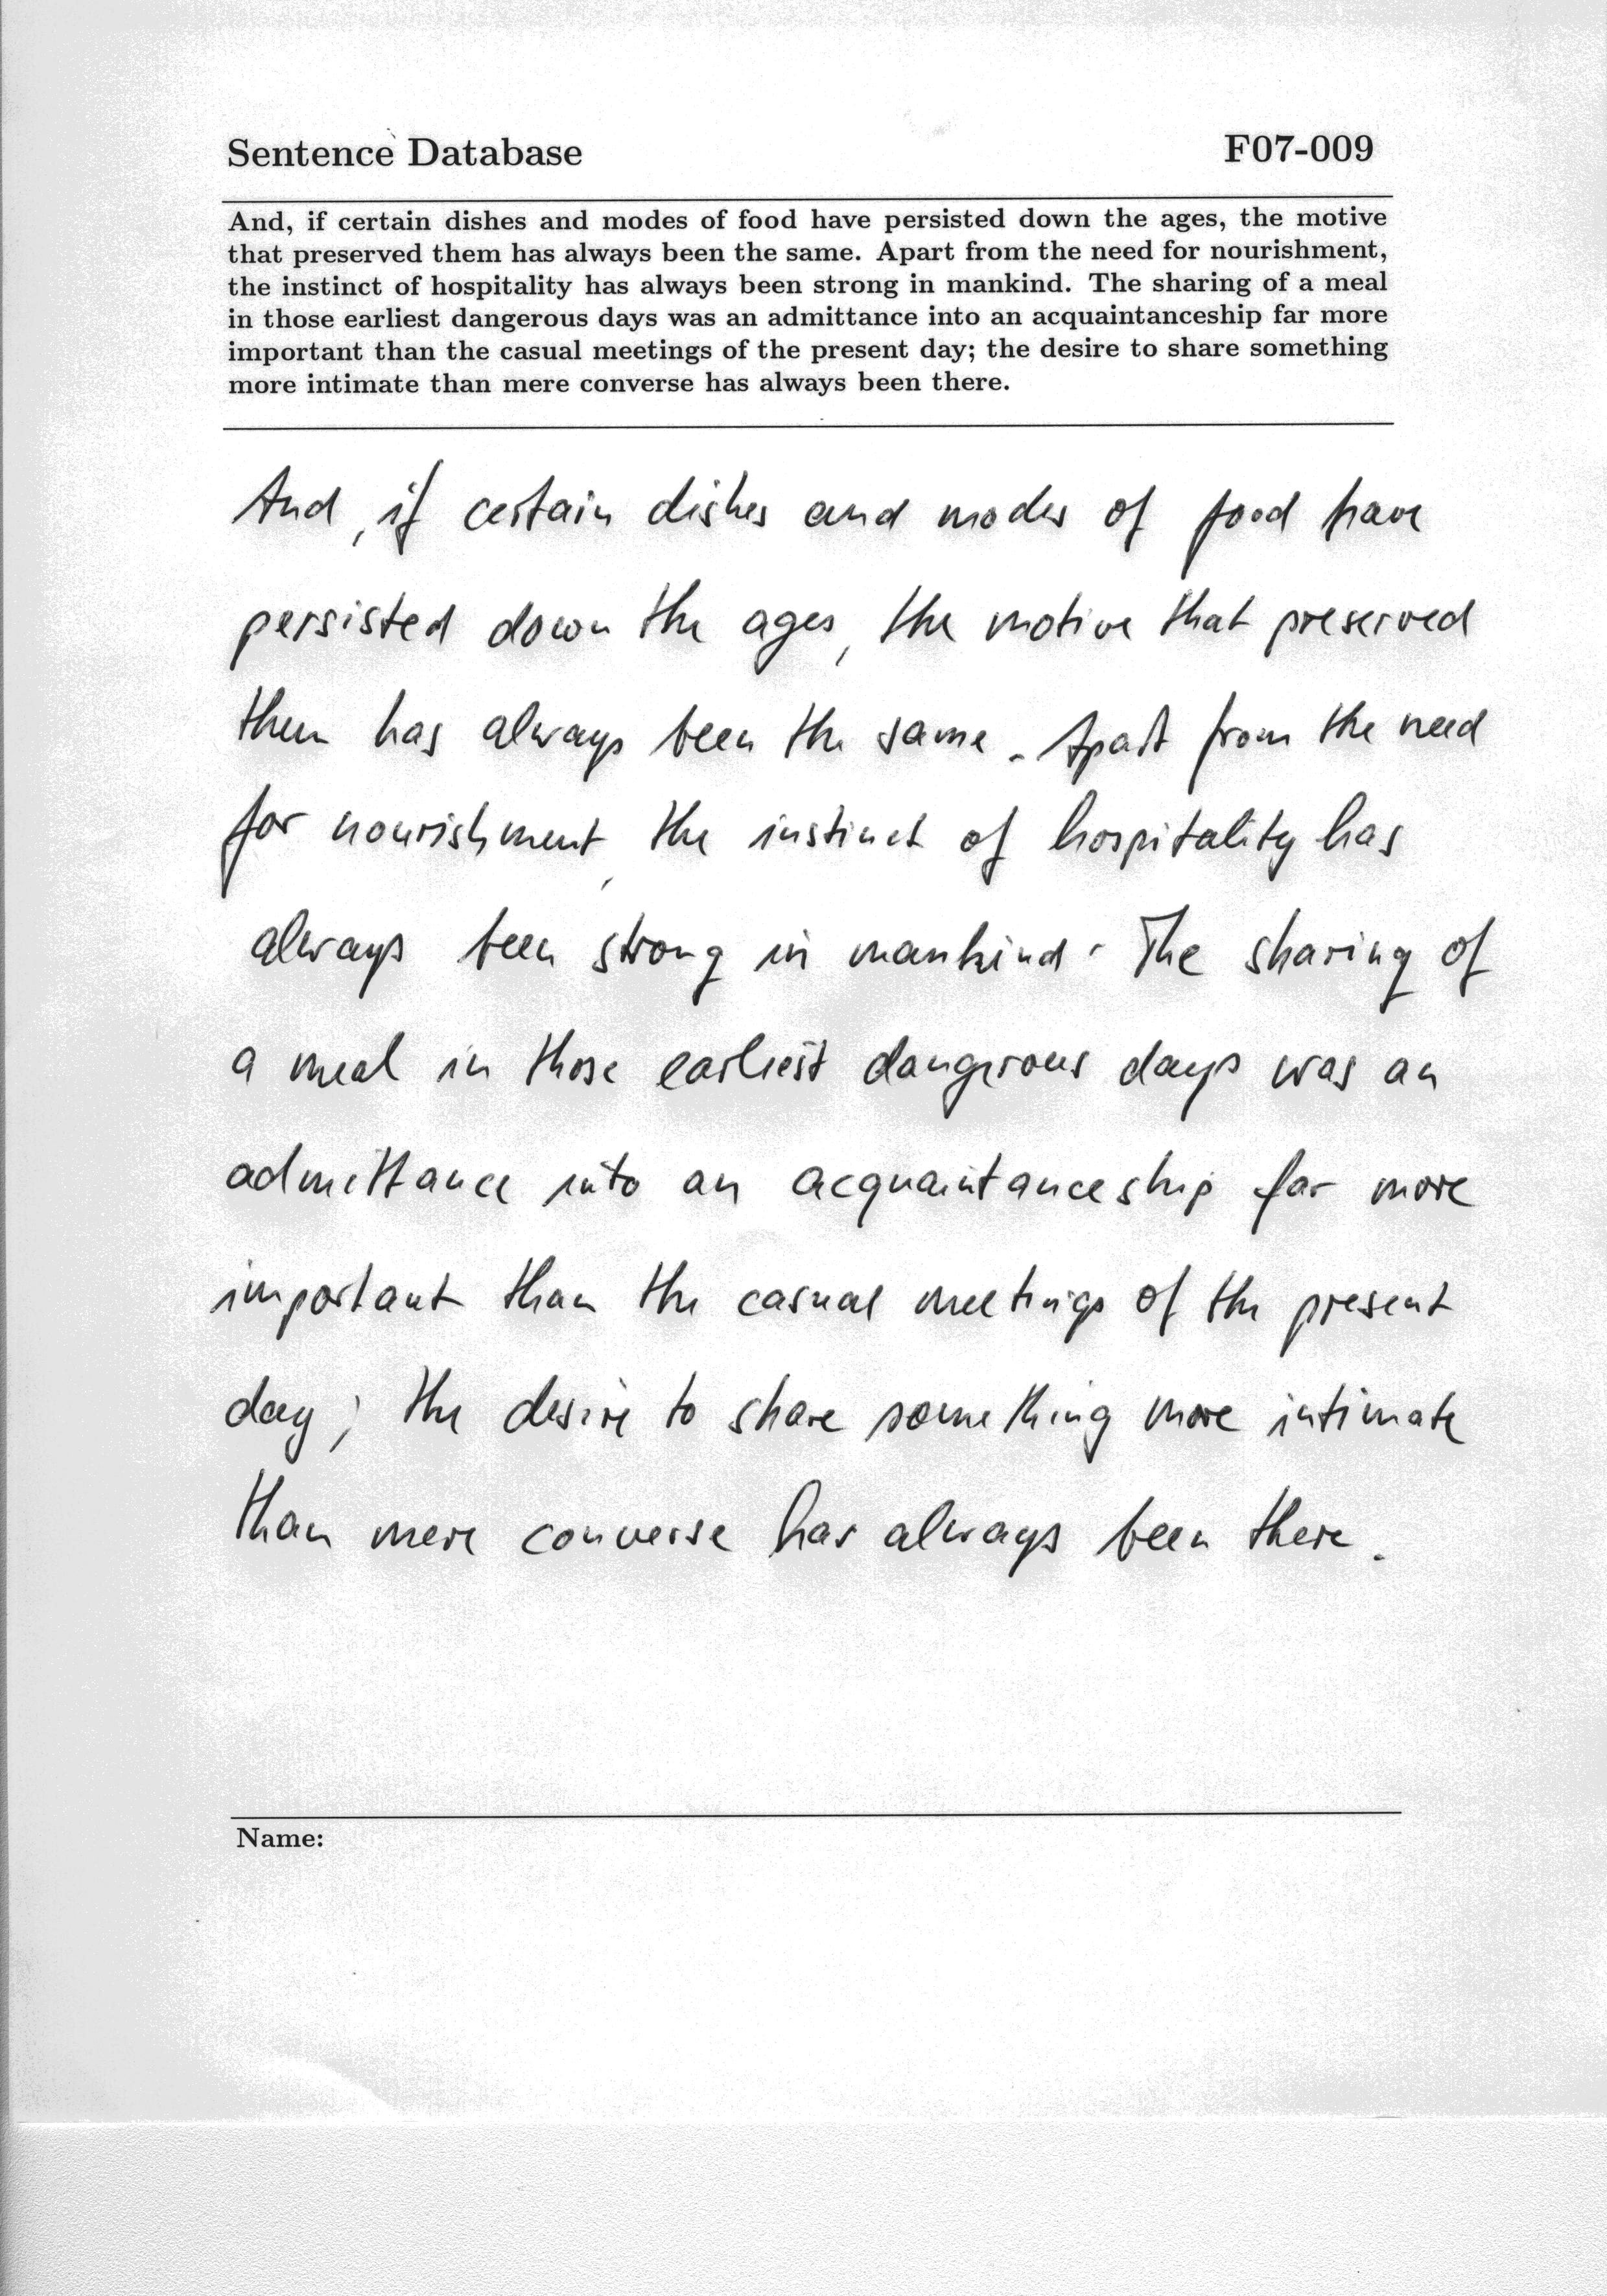 Sentence Database F07-009
And, if certain dishes and modes of food have persisted down the ages, the motive
that preserved them has always been the same. Apart from the need for nourishment,
the instinct of hospitality has always been strong in mankind. The sharing of a meal
in those earliest dangerous days was an admittance into an acquaintanceship far more
important than the casual meetings of the present day; the desire to share something
more intimate than mere converse has always been there.
And, if certain dishes and modes of food have
persisted down the ages, the motive that preserved
them has always been the same. Apart from the need
for nourishment, the instinct of hospitality has
always been strong in mankind. The sharing of
a meal in those earliest dangerous days was an
admittance into an acquaintanceship far more
important than the casual meetings of the present
day; the desire to share something more intimate
than mere converse has always been there.
Name: